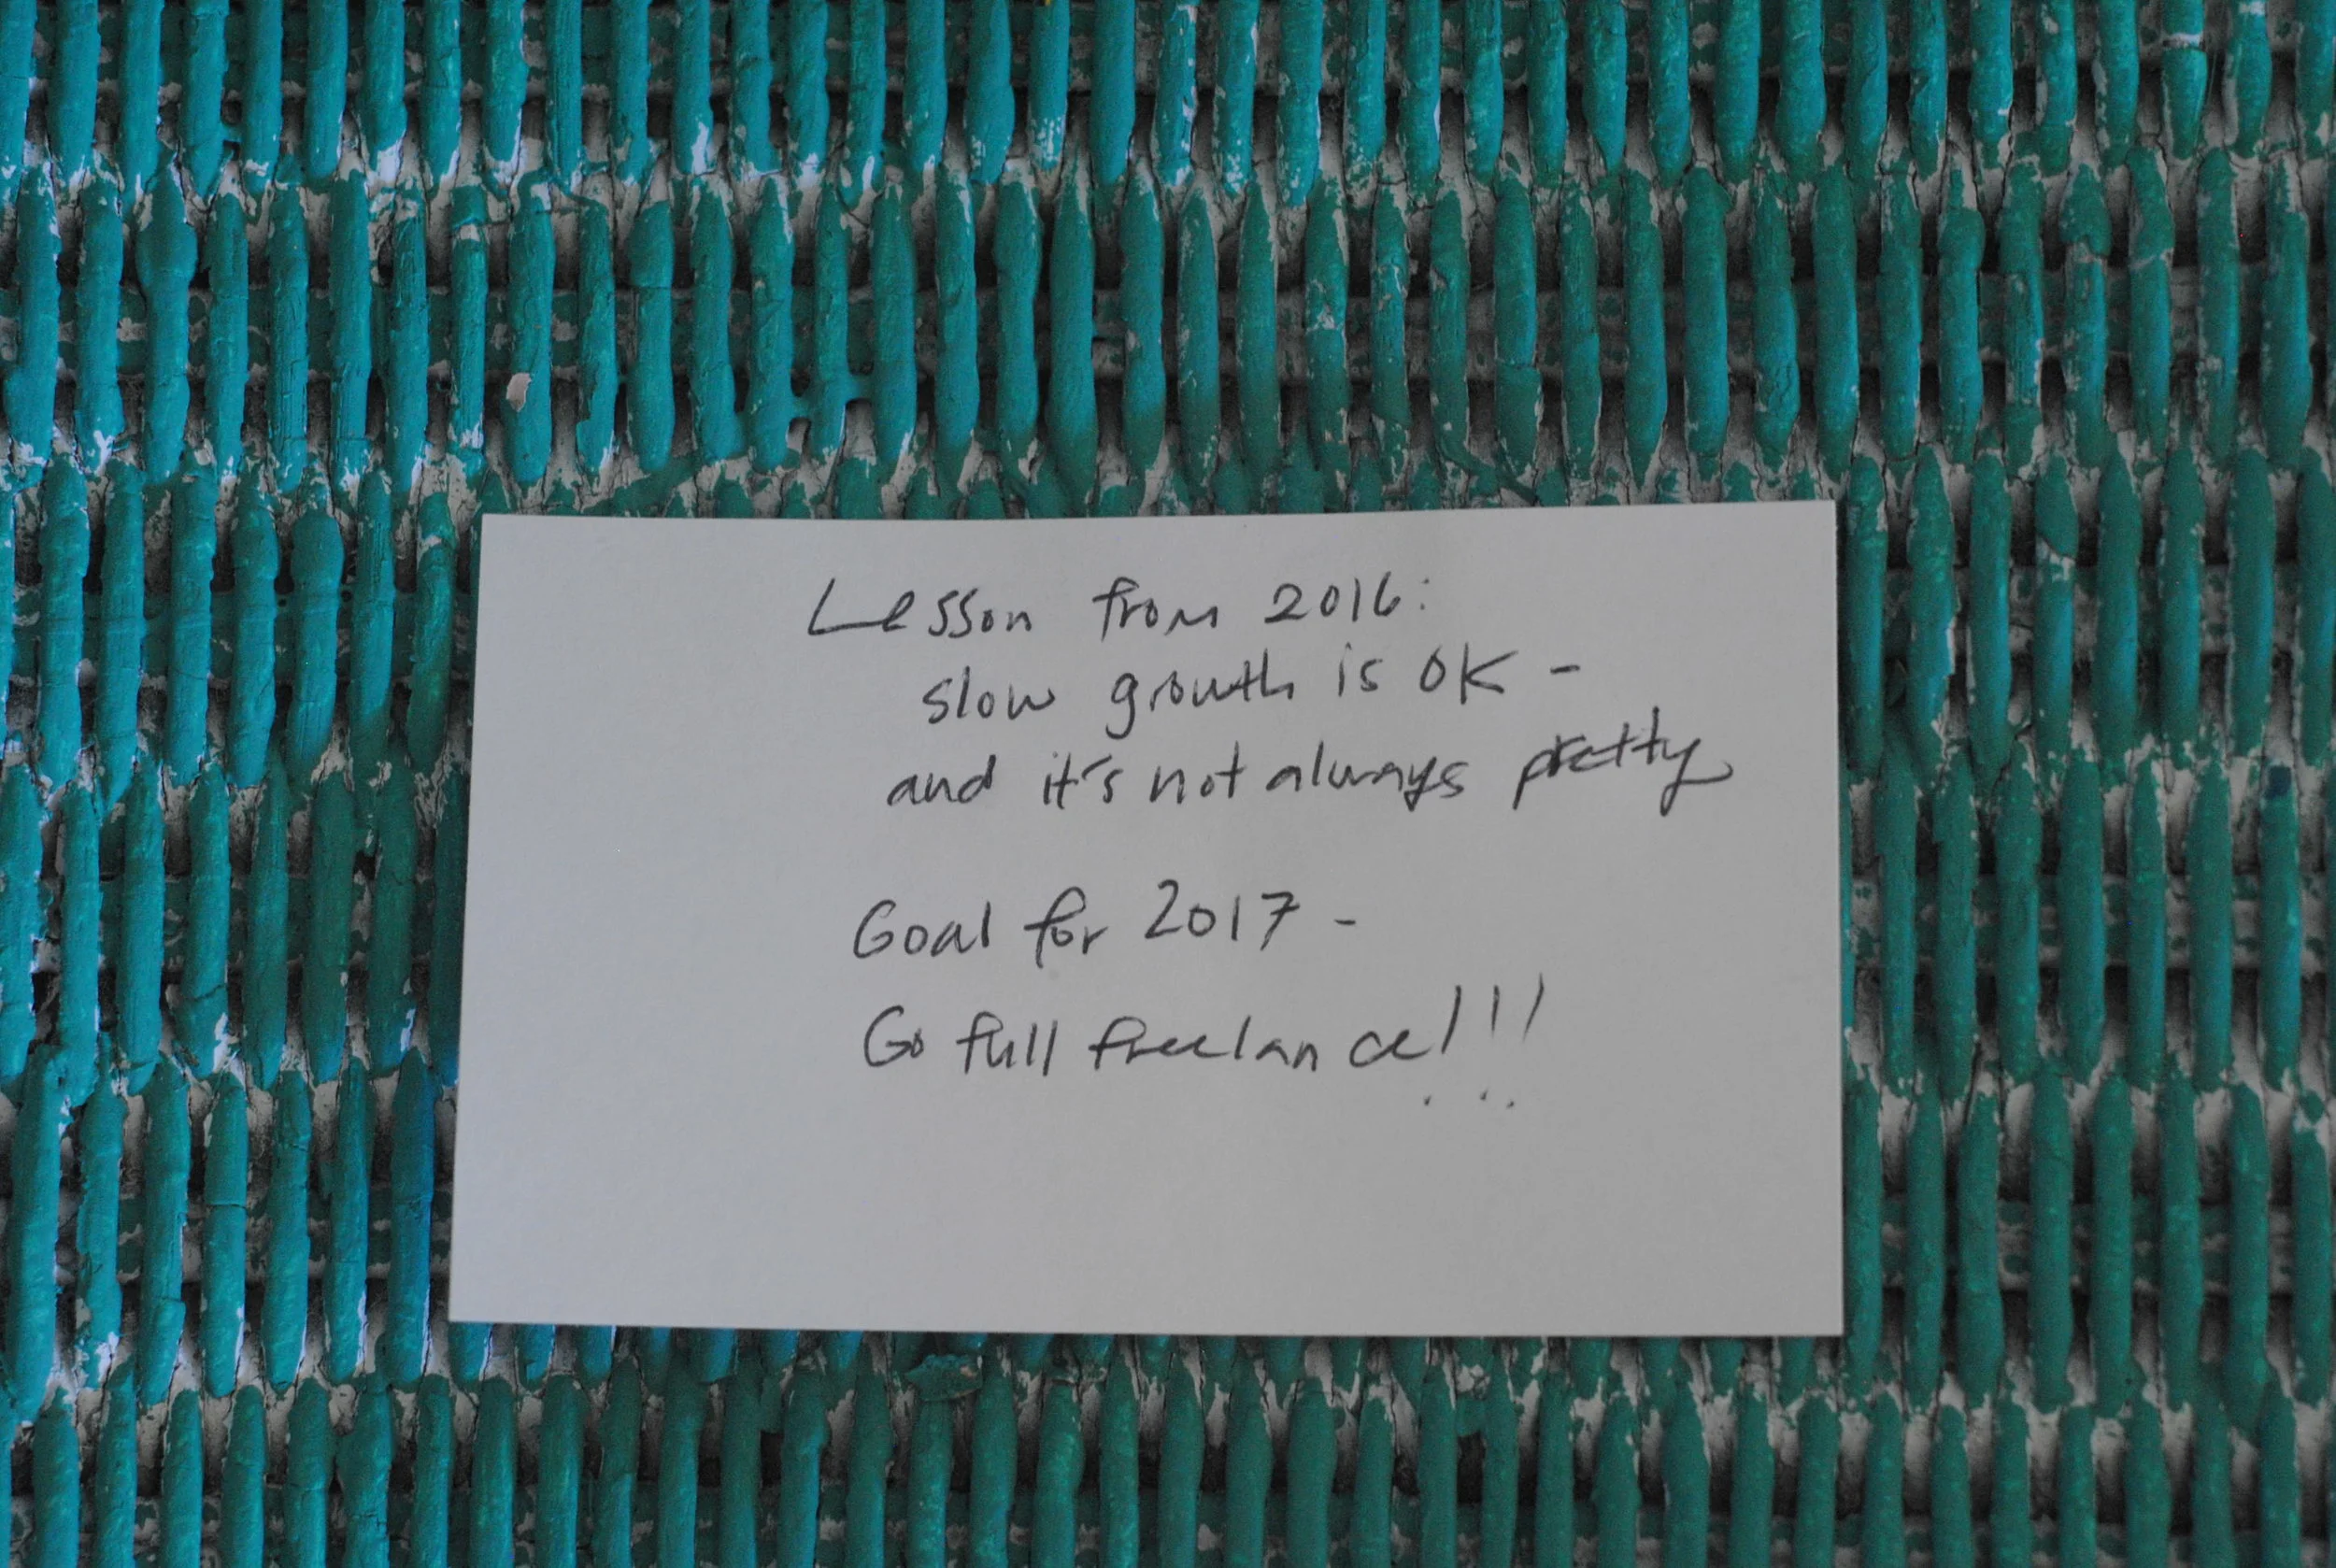 Lesson from 2016:
slow growth is OK -
and it's not always pretty
Goal for 2017 -
Go full freelance!!!